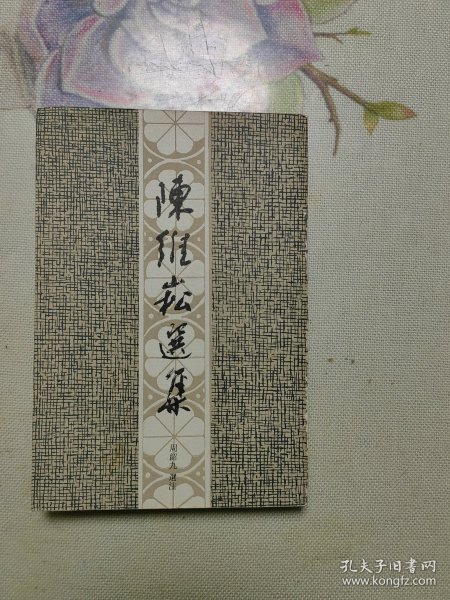 陳維崧選集
周韶九 選注
孔夫子旧书网
www.kongfz.com